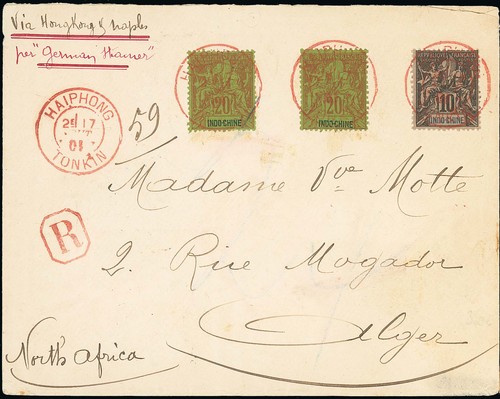 Via HongKong & Naples
per "German steamer"
HAIPHONG
17
01
TONKIN
59
20
INDO-CHINE
20
INDO-CHINE
10
INDO-CHINE
R
Madame Vve Motte
2. Rue Mogador
Alger
North Africa